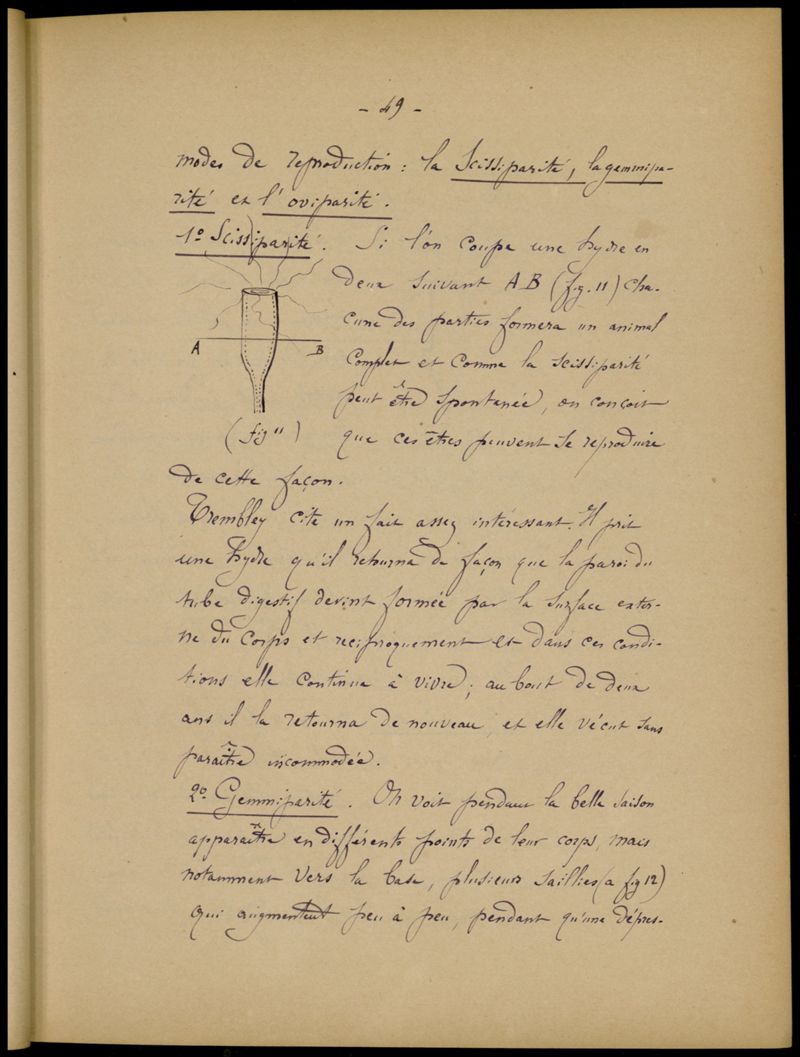 - 49 -
modes de reproduction : la Scissiparité, la gemmipa-
rité et l'oviparité.
1º Scissiparité. Si l'on coupe une hydre en
deux suivant A B (fig. 11) cha-
cune des parties formera un animal
complet et comme la scissiparité
peut être spontanée, on conçoit
que ces êtres peuvent se reproduire
A
B
(fig 11)
de cette façon.
Trembley cite un fait assez intéressant. Il prit
une hydre qu'il retourna de façon que la paroi du
tube digestif devint formée par la surface exter-
ne du corps et réciproquement et dans ces condi-
tions elle continua à vivre ; au bout de deux
ans il la retourna de nouveau et elle vécut sans
paraître incommodée.
2º Gemmiparité. On voit pendant la belle saison
apparaître en différents points de leur corps, mais
notamment vers la base, plusieurs saillies (a fig 12)
qui augmentent peu à peu, pendant qu'une dépres-